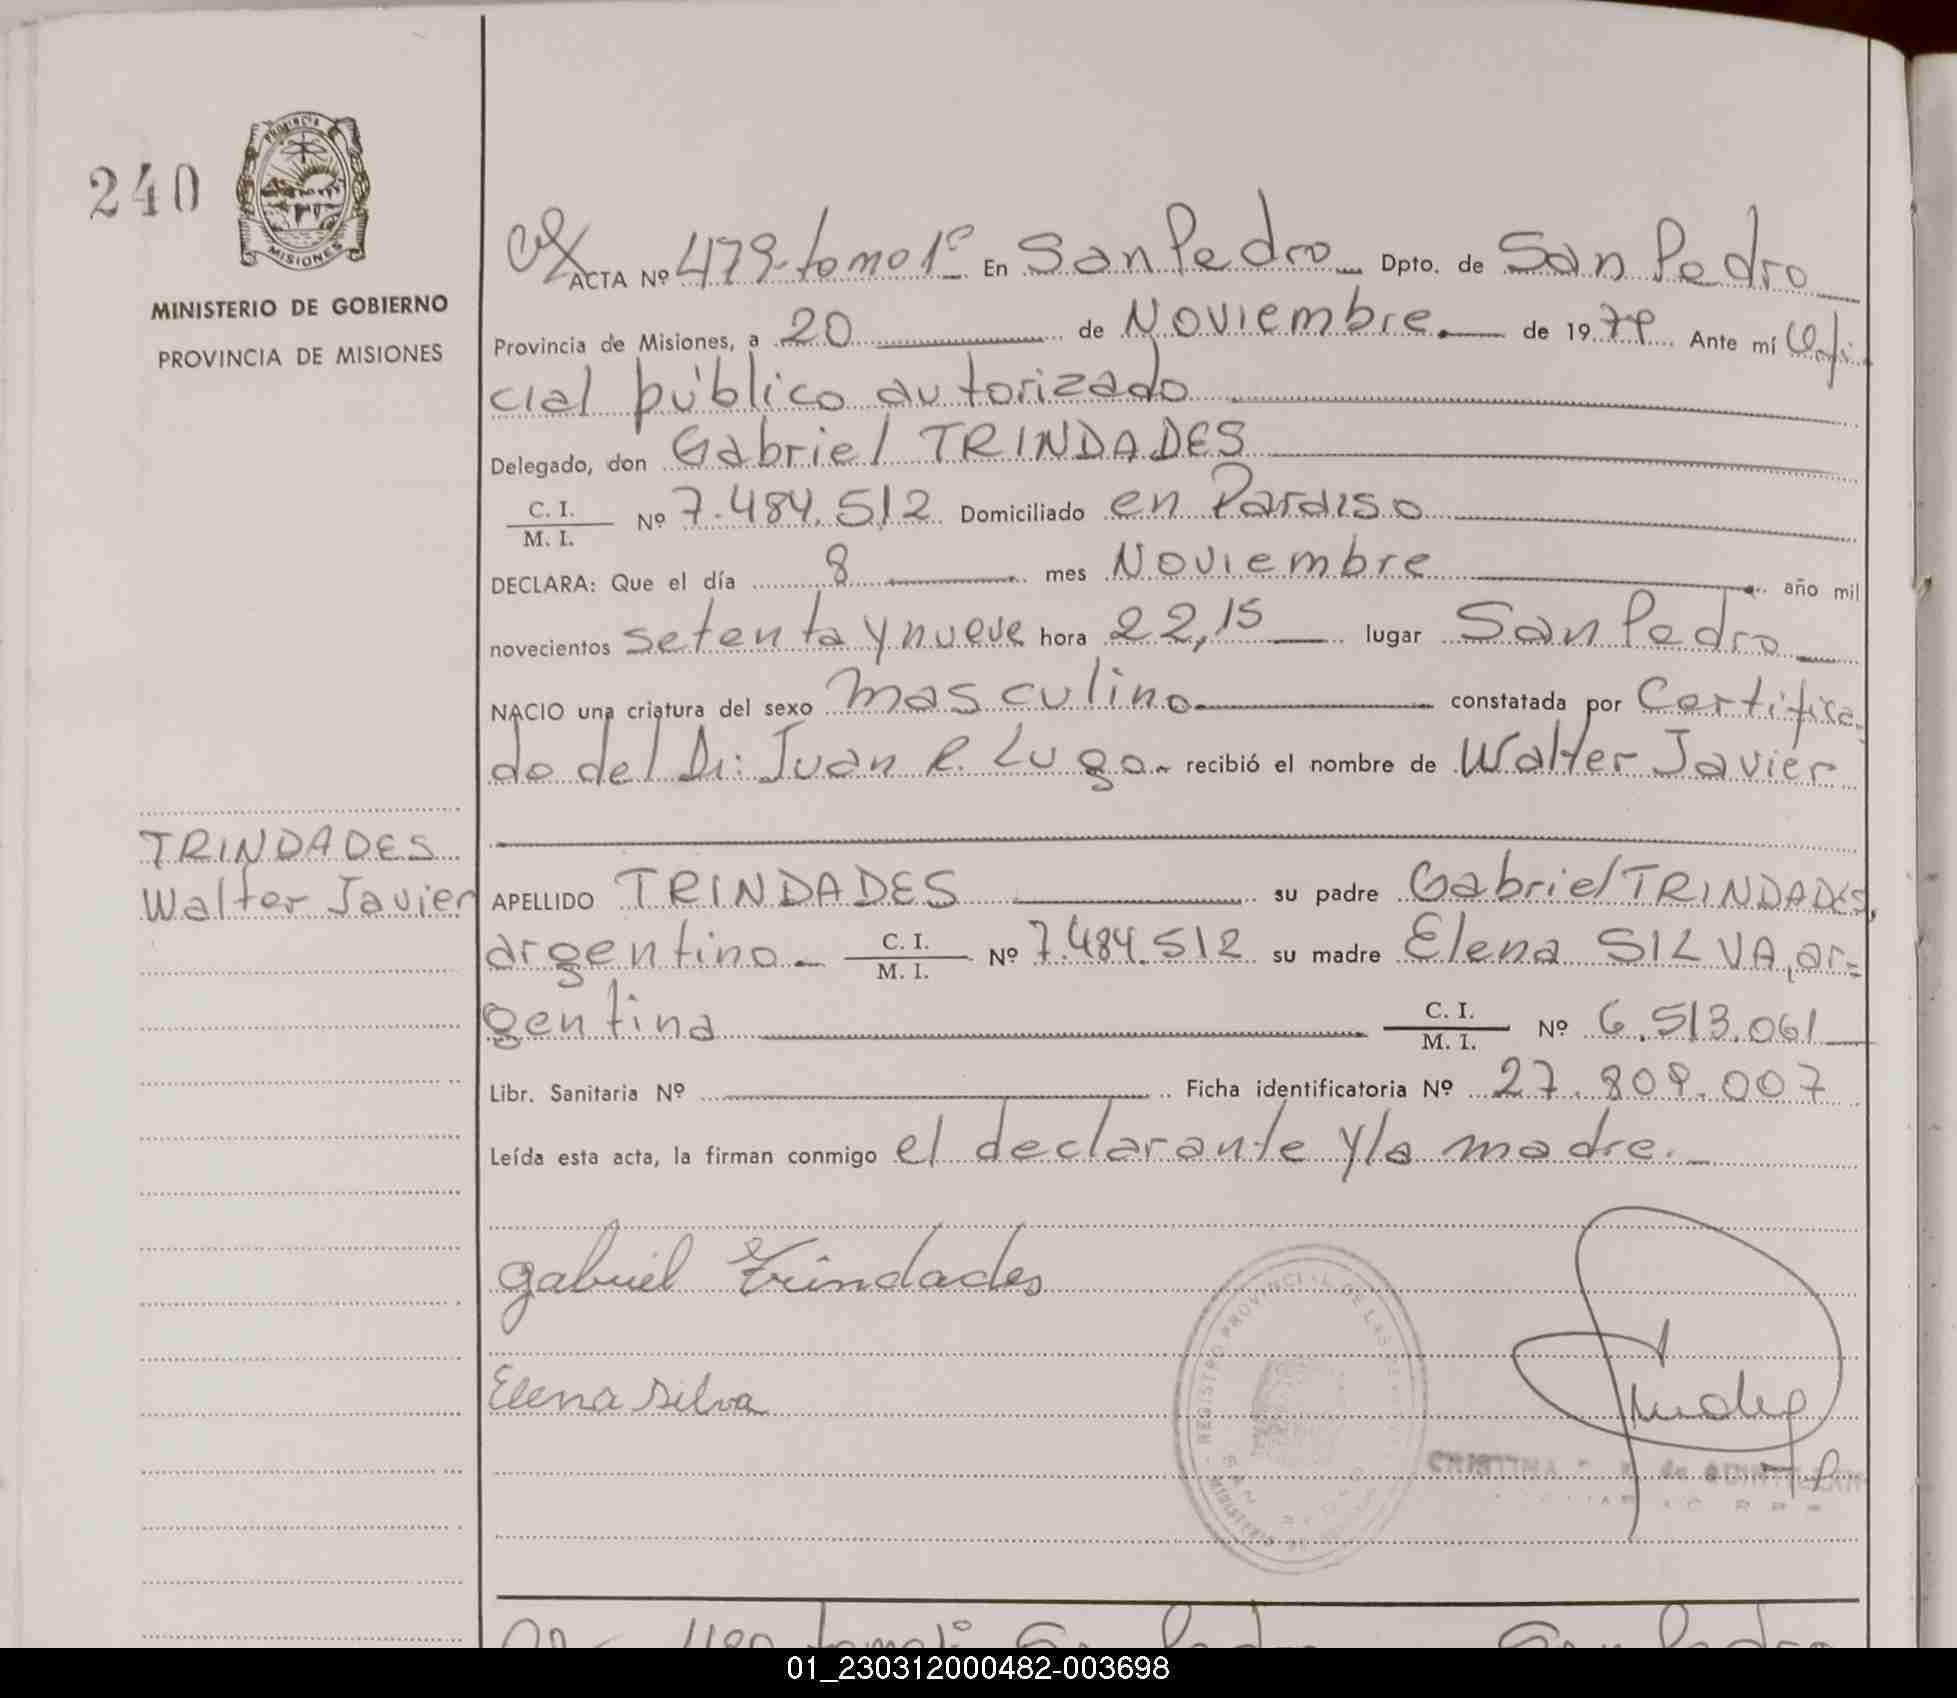 240
PROVINCIA
MISIONES
MINISTERIO DE GOBIERNO
PROVINCIA DE MISIONES
ACTA Nº 479-tomo 1º En San Pedro Dpto. de San Pedro
Provincia de Misiones, a 20 de Noviembre. de 1979 Ante mí Ofi-
cial público autorizado
Delegado, don Gabriel TRINDADES
C. I.
M. I. Nº 7.484.512 Domiciliado en Pardiso
DECLARA: Que el día 8 mes Noviembre año mil
novecientos setenta y nueve hora 22,15 lugar San Pedro
NACIO una criatura del sexo masculino constatada por Certifica-
do del Dr: Juan R. Lugo.- recibió el nombre de Walter Javier
TRINDADES
Walter Javier
APELLIDO TRINDADES su padre Gabriel TRINDADES,
argentino.- C. I.
M. I. Nº 7.484.512 su madre Elena SILVA, ar=
gentina C. I.
M. I. Nº 6.513.061
Libr. Sanitaria Nº Ficha identificatoria Nº 27.809.007
Leída esta acta, la firman conmigo el declarante y la madre.-
gabriel Trindades
Elena silva
REGISTRO PROVINCIAL DE LAS
MINISTERIO DE
SAN PEDRO
CRISTINA de
01_230312000482-003698